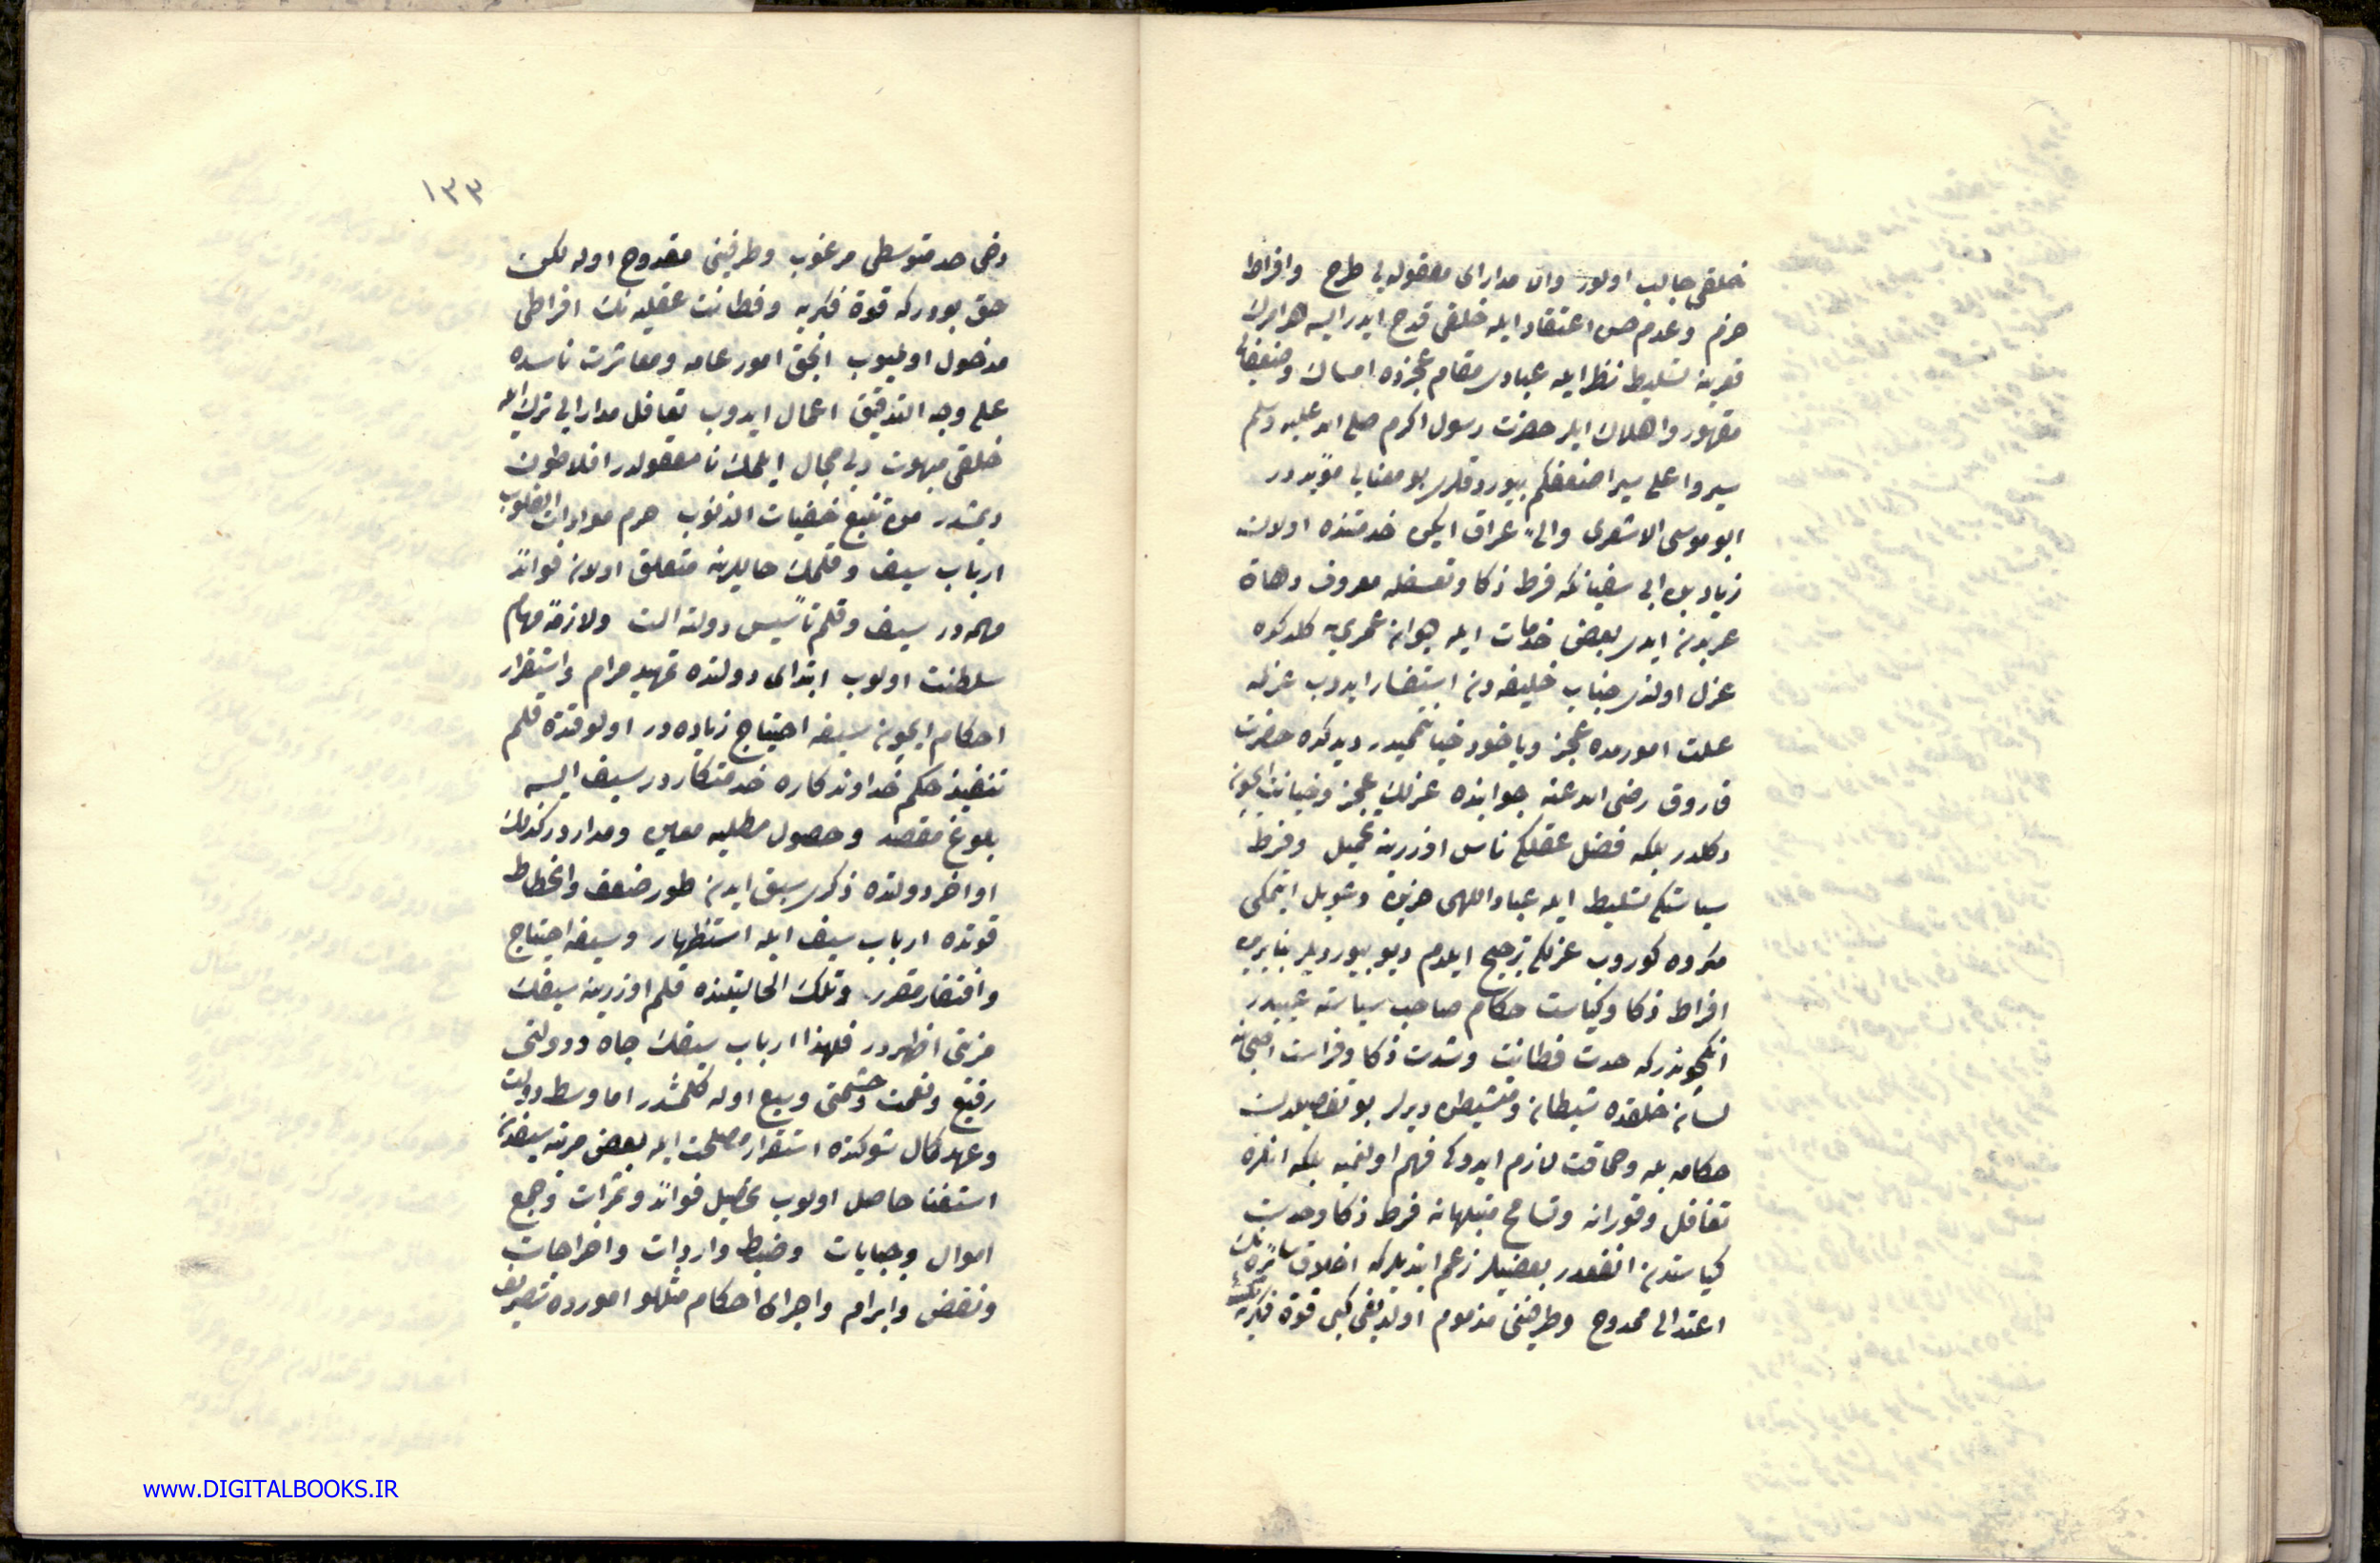 خلقی جالب اولور وان مدارای معقوله یی طرح وافراط
حزم وعدم حسن اعتقاد ایله خلقی قدح ایدر ایسه هر امرك
قعرینه تسلیط نظر ایله عبادی مقام عجزده امساك وضعیفانی
مقهور واهلاك ایلر حضرت رسول اکرم صلی الله علیه وسلم
سیروا علی سیر اضعفکم بیوردقلری بو معنایی مؤیددر
ابو موسی الاشعری والئ عراق ایکن خدمتنده اولان
زیاد بن ابی سفیانکه فرط ذکا وتعسفله معروف دهاة
عربدن ایدی بعض خدمات ایله دیوان عمری یه کلدکده
عزل اولندی جناب خلیفه دن استفسار ایدوب عزلمه
علت امورمده عجز ویاخود خیانتمیدر دیدکده حضرت
فاروق رضی الله عنه جوابنده عزلك عجز وخیانت ایچون
دکلدر بلکه فضل عقلکی ناس اوزرینه تحمیل وفرط
سیاستکی تسلیط ایله عباد اللهی هزیزه وعویل ایتمکی
مکروه کوروب عزلکی ترجیح ایلدم دیو بیوردیلر بنابرین
افراط ذکا وکیاست حکام صاحب سیاسته عیبدر
انکچوندرکه حدت فطانت وشدت ذکا وفراست اصحابنه
لسان خلقده شیطان ومتشیطن دیرلر بو تفصیلدن
حکامه بله وحماقت لازم ایدوکی فهم اولنمیه بلکه انلره
تغافل وقورانه وتسامح متبلهانه فرط ذکا وحدت
کیاستدن انفعدر بعضیلر زعم ایتدیلرکه اخلاق سائره نك
اعتدالی ممدوح وطرفینی مذموم اولدیغی کبی قوة فکریه نك
دخی حد متوسطی مرغوب وطرفینی مقدوح اوله لکن
حق بودرکه قوة فکریه وفطانت عقلیه نك افراطی
مدخول اولمیوب انجق امور عامه ومعاشرت ناسده
علی وجه التدقیق اعمال ایدوب تغافل مدارایی ترك ایله
خلقی مبهوت وبی مجال ایلمك نا معقولدر افلاطون
دیمشدر من تتبع خفیات الذنوب حرم مودات القلوب
ارباب سیف وقلمك حاللرینه متعلق اولان فوائد
مهمه در سیف وقلم تأسیس دولته الت ولازمۀ مهام
سلطنت اولوب ابتدای دولتده تمهید مرام واستقرار
احکام ایچون سیفه احتیاج زیاده در اول وقتده قلم
تنفیذ حکم خداوندکاره خدمتکاردر سیف ایسه
بلوغ مقصد وحصول مطلبه معین ومداردر کذلك
اواخر دولتده ذکری سبق ایدن طور ضعف وانحطاط
قوتده ارباب سیف ایله استظهار وسیفه احتیاج
وافتقار مقرر وتلك الحالیتنده قلم اوزرینه سیفك
مزیتی اظهردر فلهذا ارباب سیفك جاه ودولتی
رفیع ونعمت وحشمتی وسیع اوله کلمشدر اما وسط دولت
وعهد کمال شوکتده استقرار مصلحت ایله بعض مرتبه سیفدن
استغنا حاصل اولوب تحصیل فوائد وثمرات وجمع
اموال وجبایات وضبط واردات واخراجات
ونقض وابرام واجرای احکام مثللو امورده تصریف
١٣٣
www.DIGITALBOOKS.IR